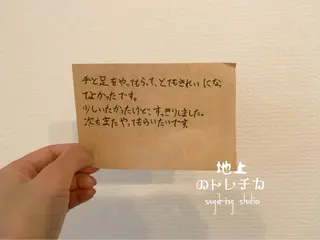 手と足をやってもらって、とてもきれいになっ
てよかったです。
少しいたかったけど、すっきりしました。
次もまたやってもらいたいです。
地上
のトレチカ
sugaring studio